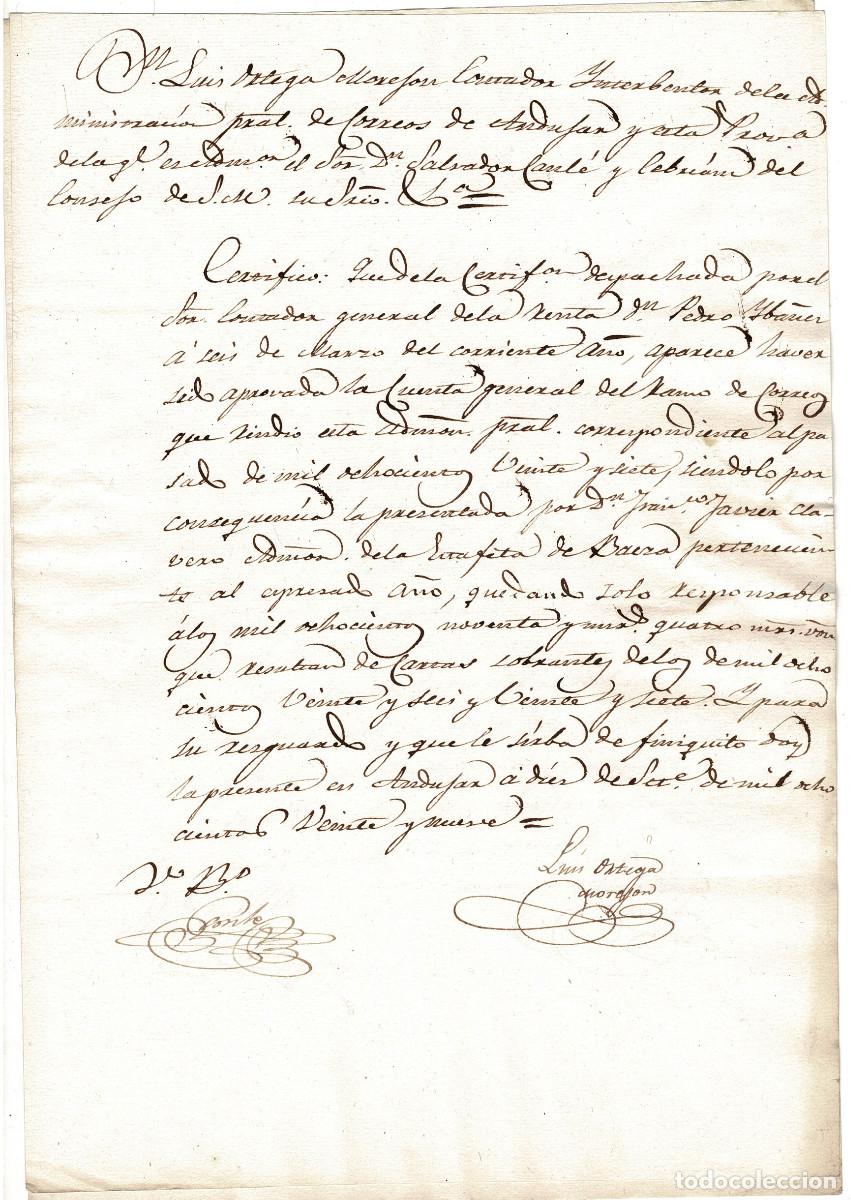 Dn. Luis Ortega Morejon Contador Ynterbentor de la Ad-
ministracion pral. de Correos de Andujar y esta Prova
de la ql. es Admor. el Sor. Dn. Salvador y Cebrián del
Consejo de S.M. su Srio. &a
Certifico: Que de la Certifon. despachada por el
Sor. Contador general de la Renta Dn. Pedro Ybañez
á seis de Marzo del corriente Año, aparece haver
sido aprovada la Cuenta general del Ramo de Correos
que rindio esta Admon. pral. correspondiente al pa
sado de mil ochocientos veinte y siete, siendolo por
consequencia la presentada por Dn. Franco. Javier Cla-
vero Admor. de la Estafeta de Baeza pertenecien-
te al espresado año, quedando solo responsable
á los mil ochocientos noventa y quatro mrs. von
que resultan de Cartas sobrantes de los de mil ocho
cientos veinte y seis y veinte y siete. Y para
su resguardo y que le sirba de finiquito doy
la presente en Andujar á diez de Sete. de mil ocho
cientos veinte y nueve =
Vo. Bo.
Luis Ortega
Morejon
todocoleccion